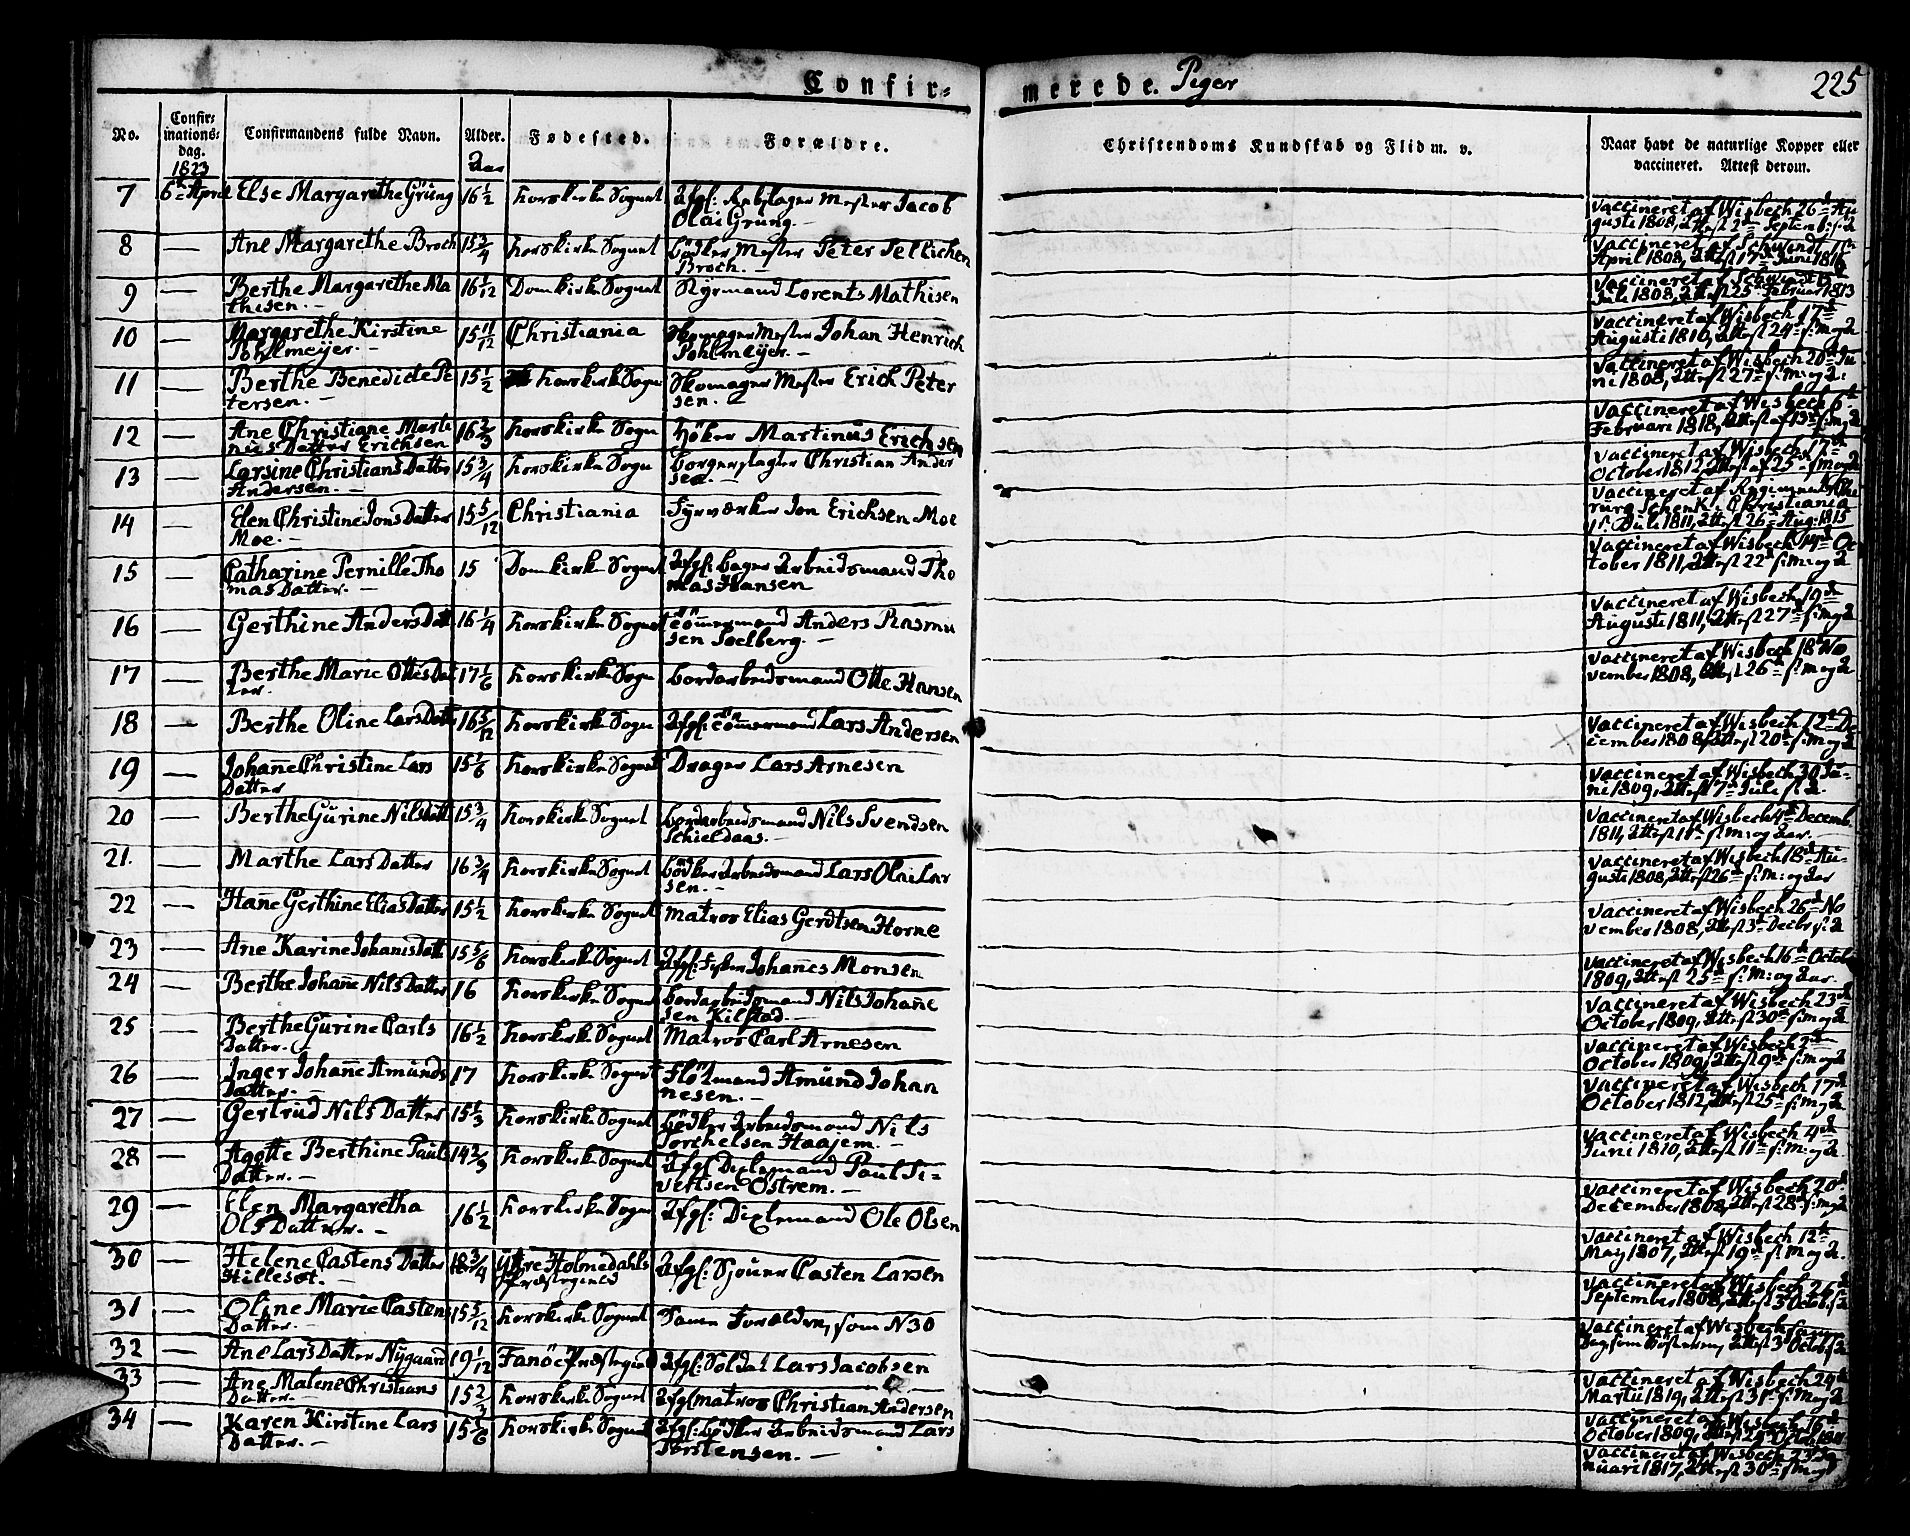 Confir=
merede. Piger
225
No.
Confir=
mations=
dag.
1823
Confirmandens fulde Navn.
Alder.
Aar
Fødested.
Forældre.
Christendoms Kundskab og Flid m. v.
Naar havt de naturlige Kopper eller
vaccineret. Attest derom.
7 6te April Else Margarethe Grüng 16 1/2 Korskirke Sognet Afgl: Rebslager Mester Jacob
Olai Grung.-
Vaccineret af Wisbech 26de Au
gusti 1808, Attest 2de Septemb: s: A
8 — Ane Margarethe Broch 15 3/4 Korskirke Sognet Bødker Mester Peter Tellichen
Broch.-
Vaccineret af Schwindt
April 1808, Attest 17de Juni 1816
9 — Berthe Margarethe Ma
thisen.- 16 1/12 Domkirke Sognet Styrmand Lorents Mathisen
Vaccineret af Schwindt
Juli 1808, Attest 25de Februar 1813
10 — Margarethe Kirstine
Pohlmeÿer.- 15 11/12 Christiania Skomager Mester Johan Henrich
Pohlmeÿer.-
Vaccineret af Wisbech 17de
Augusti 1810, Attest 24de s: M: og A
11 — Berthe Benedicte Pe
tersen.- 15 1/2 Korskirke Sogn Skomager Mester Erich Peter
sen.-
Vaccineret af Wisbech 20de Ju
ni 1808, Attest 27de s: M: og A:
12 — Ane Christiane Marti
nüs Datter Erichsen 16 2/3 Korskirke Sogn Høker Martinüs Erichsen
Vaccineret af Wisbech 6te
Februari 1818, Attest af 13de s: M: og A
13 — Larsine Christians Datter
Andersen.- 15 3/4 Korskirke Sogn Borger Christian Ander
sen.-
Vaccineret af Wisbech 17de
October 1812 Attest af 25de s: M: og A
14 — Elen Christine Jons Datter
Moe.- 15 5/12 Christiania Fyrværker Jon Erichsen Moe
Vaccineret af Regiments Chi
rurg Schenk i Christiania
Juli 1811, Attest 26de Aug: 1815
15 — Catharine Pernille Tho
mas Datter.- 15 Domkirke Sognet Afgl: Bager Arbeidsmand Tho
mas Hansen
Vaccineret af Wisbech Oc
tober 1811, Attest 22de s: M: og A
16 — Gerthine Anders Datt 16 1/4 Korskirke Sognet Tömmermand Anders Rasmu
sen Soelberg.-
Vaccineret af Wisbech 19de
Augusti 1811, Attest 27de s: M: og A
17 — Berthe Marie Ottes Dat
ter. 17 1/6 Korskirke Sogn Bordarbeidsmand Otte Hansen
Vaccineret af Wisbech 18de No
vember 1808, Attest 26de s: M: og A
18 — Berthe Oline Lars Datter 16 5/12 Korskirke Sogn Afgl: Tömmermand Lars Andersen
Vaccineret af Wisbech 12te De
cember 1808 Attest 20de s: M: og A
19 — Johañe Christine Lars
Datter 15 1/6 Korskirke Sognet Drager Lars Arnesen
Vaccineret af Wisbech 30 Ju=
ni 1809, Attest 7de Juli s: A.
20 — Berthe Gürine Nils Datt 15 3/4 Korskirke Sognet Bordarbeidsmand Nils Svendsen
Schieldaas.-
Vaccineret af Wisbech 4de Decemb:
1811, Attest 11te s: M: og Aar.-
21. — Marthe Lars Datter 16 3/4 Korskirke Sognet Bødker Arbeidsmand Lars Olai Lar
sen.-
Vaccineret af Wisbech 18de Au-
gusti 1808, Attest 26de s: M: og Aar
22 — Hañe Gerthine Elias Datter 15 1/2 Korskirke Sognet Matros Elias Gerdtsen Horne
Vaccineret af Wisbech 26de No
vember 1808, Attest 3de Decbr s: A
23 — Ane Karine Johañs Datt 15 5/6 Korskirke Sognet Afgl: Fisker Johañes Monsen
Vaccineret af Wisbech 16de Octob
1809, Attest 25de s: M: og Aar.
24 — Berthe Johañe Nils Datter 16 Korskirke Sognet Bordarbeidsmand Nils Johañe
sen Kilstad.-
Vaccineret af Wisbech 23de
October 1809, Attest 30te s: M: og A
25 — Berthe Gürine Carls
Datter.- 16 1/2 Korskirke Sognet Matros Carl Arnesen
Vaccineret af Wisbech 2de
October 1809, Attest 9de s: M: og A
26 — Inger Johañe Amünds
Datter.- 17 Korskirke Sognet Flötmand Amünd Johan
nesen.-
Vaccineret af Wisbech 17de
October 1812, Attest 25de s: M: og A
27 — Gertrüd Nils Datter 15 1/3 Korskirke Sognet Bödker Arbeidsmand Nils
Torchelsen Haajem.-
Vaccineret af Wisbech 4de
Juni 1810, Attest 11te s: M: og A
28 — Agotte Berthine Paüls
Datter.- 14 2/3 Korskirke Sognet Afgl Dixlemand Paul Si-
vertsen Ostrem.-
Vaccineret af Wisbech 20de
December 1808, Attest 28de s: M: og A
29 — Elen Margaretha
Ols Datter.- 16 1/2 Korskirke Sogn Afgl: Dixlemand Ole Olsen
Vaccineret af Wisbech 12te
May 1807, Attest 19de s: M: og A.
30 — Helene Castens Datter
Hillesøt.- 18 3/4 Ÿttre Holmedahls
Præstegield Afgl: Sjouer Casten Larsen
Vaccineret af Wisbech 26de
September 1808, Attest 3 Octob: s: A
31 — Oline Marie Castens
Datter.- 15 5/12 Korskirke Sognet Samme Forældre, som N30
Vaccineret af Wisbech samme
Dag som Søsteren, Attest 3 Octob: s: A
32 — Ane Lars Datter Nÿgaard 19 1/12 Fanöe Præstegield Afgl: Soldat Lars Jacobsen
Vaccineret af Wisbech 24de
Martii 1819, Attest 31te s: M: og A
33 — Ane Malene Christians
Datter.- 15 2/3 Korskirke Sognet Afgl Matros Christian Andersen
Vaccineret af Wisbech 16de
October 1809, Attest
34 — Karen Kirstine Lars
Datter.- 15 1/6 Korskirke Sognet Afgl: Bödker Arbeidsmand Lars
Torstensen.-
Vaccineret af Wisbech 23de Ja
nuari 1817, Attest 30te s: M: og A